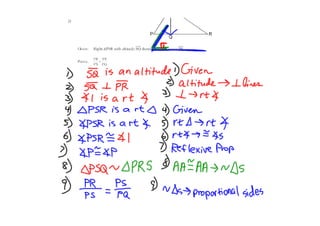 P Q R
Given: Right ΔPSR with altitude SQ
Prove: PR/PS = PS/PQ
1) SQ is an altitude 1) Given
2) SQ ⊥ PR 2) altitude → ⊥ lines
3) ∡1 is a rt ∡ 3) ⊥ → rt ∡
4) △PSR is a rt △ 4) Given
5) ∡PSR is a rt ∡. 5) rt △ → rt ∡
6) ∡PSR ≅ ∡1 6) rt ∡ → ≅ ∡s
7) ∡P ≅ ∡P 7) Reflexive Prop
8) △PSQ ~ △PRS 8) AA ≅ AA → ~△s
9) PR/PS = PS/PQ 9) ~△s → proportional sides